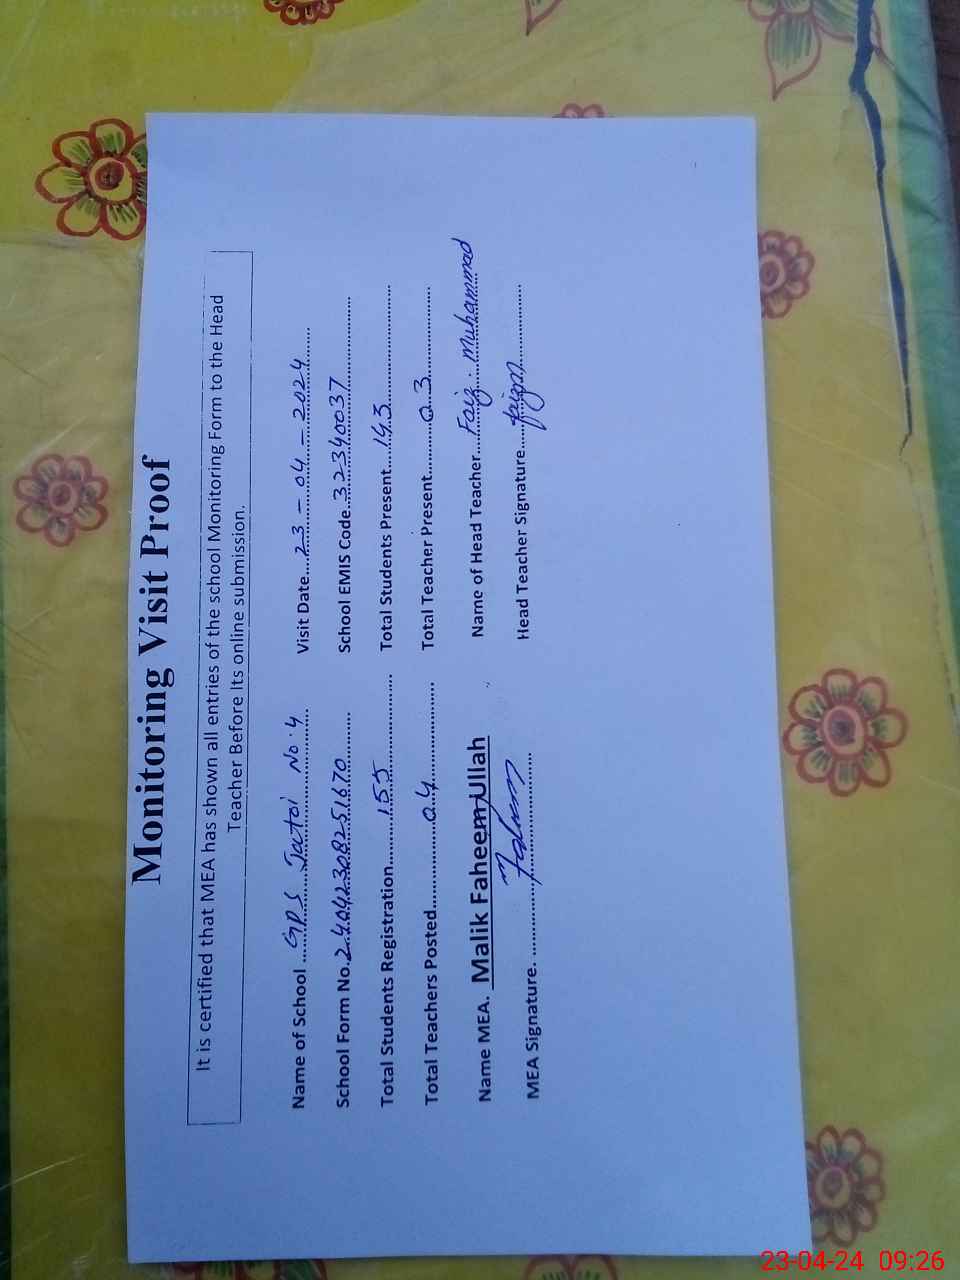 Monitoring Visit Proof
It is certified that MEA has shown all entries of the school Monitoring Form to the Head
Teacher Before Its online submission.
Name of School ...GPS Jatoi No.4... Visit Date...23-04-2024...
School Form No.240423082551670... School EMIS Code..32340037...
Total Students Registration...155... Total Students Present...143...
Total Teachers Posted...04... Total Teacher Present...03...
Name MEA. Malik Faheem Ullah Name of Head Teacher...Faiz Muhammad
MEA Signature. ...Faheem... Head Teacher Signature...faizm...
23-04-24 09:26